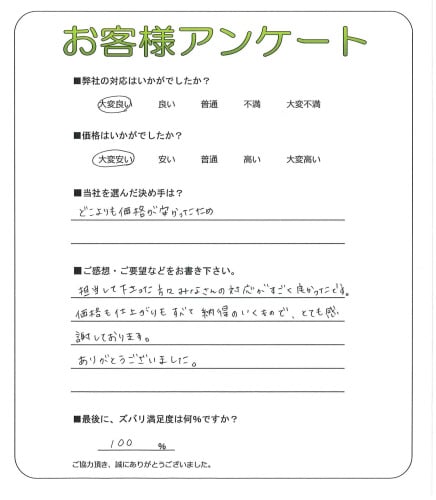 お客様アンケート
■弊社の対応はいかがでしたか？
大変良い 良い 普通 不満 大変不満
■価格はいかがでしたか？
大変安い 安い 普通 高い 大変高い
■当社を選んだ決め手は？
どこよりも価格が安かったため
■ご感想・ご要望などをお書き下さい。
担当して下さった方々みなさんの対応がすごく良かったです。
価格も仕上がりもすべて納得のいくもので、とても感
謝しております。
ありがとうございました。
■最後に、ズバリ満足度は何%ですか？
100 %
ご協力頂き、誠にありがとうございました。